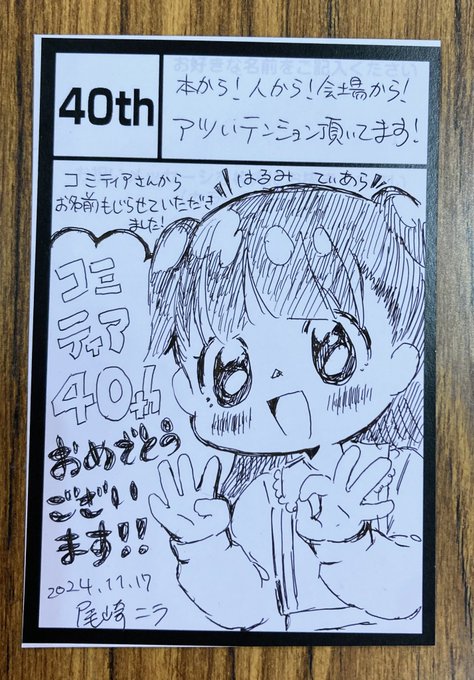 40th
本から！人から！会場から！
アツいテンション頂いてます！
コミティアさんから
お名前もじらせていただき
ました！
はるみ てぃあら
コミ
ティア
40th
おめでとう
ござい
ます!!
2024.11.17
尾崎ニラ